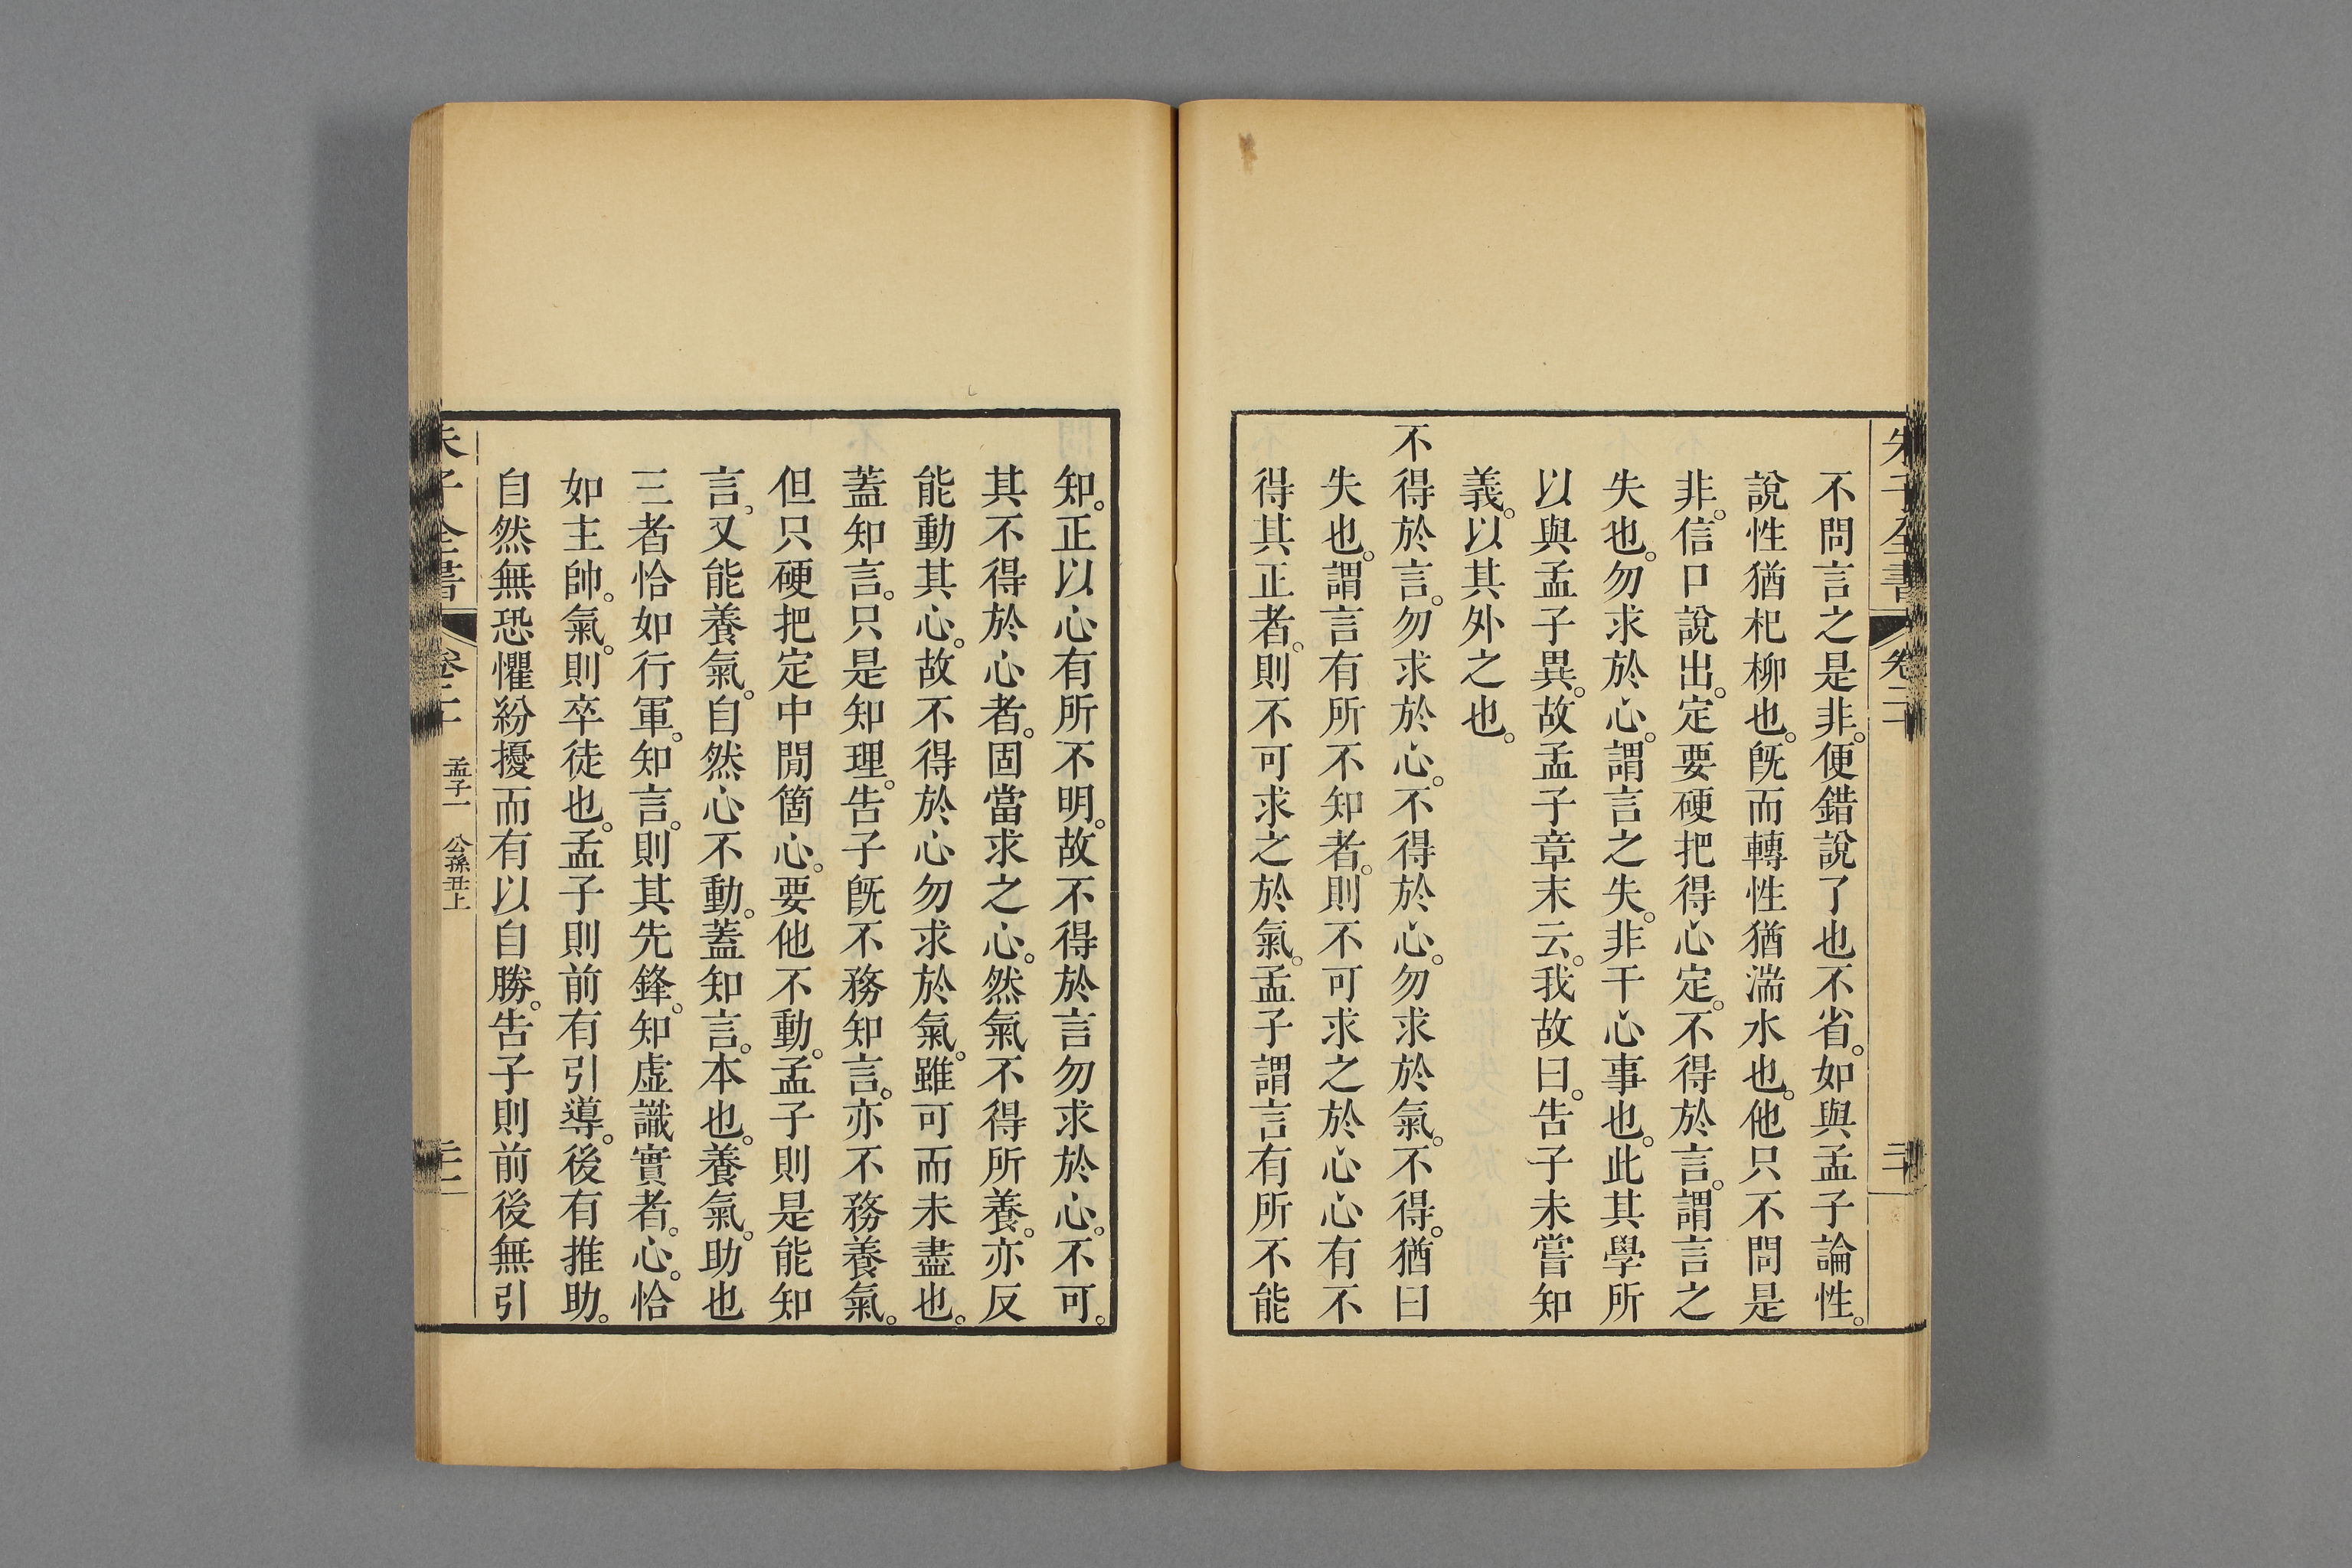 朱子全書 卷二十
不問言之是非。便錯說了也不省。如與孟子論性。
說性猶杞柳也。旣而轉性猶湍水也。他只不問是
非。信口說出。定要硬把得心定。不得於言。謂言之
失也。勿求於心。謂言之失。非干心事也。此其學所
以與孟子異。故孟子章末云。我故曰。告子未嘗知
義。以其外之也。
不得於言。勿求於心。不得於心。勿求於氣。不得。猶曰
失也。謂言有所不知者。則不可求之於心心有不
得其正者。則不可求之於氣。孟子謂言有所不能
知。正以心有所不明。故不得於言勿求於心。不可。
其不得於心者。固當求之心。然氣不得所養。亦反
能動其心。故不得於心勿求於氣。雖可而未盡也。
蓋知言。只是知理。告子旣不務知言。亦不務養氣。
但只硬把定中閒箇心。要他不動。孟子則是能知
言。又能養氣。自然心不動。蓋知言。本也。養氣。助也
三者恰如行軍。知言。則其先鋒。知虛識實者。心。恰
如主帥。氣。則卒徒也。孟子則前有引導。後有推助。
自然無恐懼紛擾而有以自勝。告子則前後無引
朱子全書 卷二十 孟子一 公孫丑上